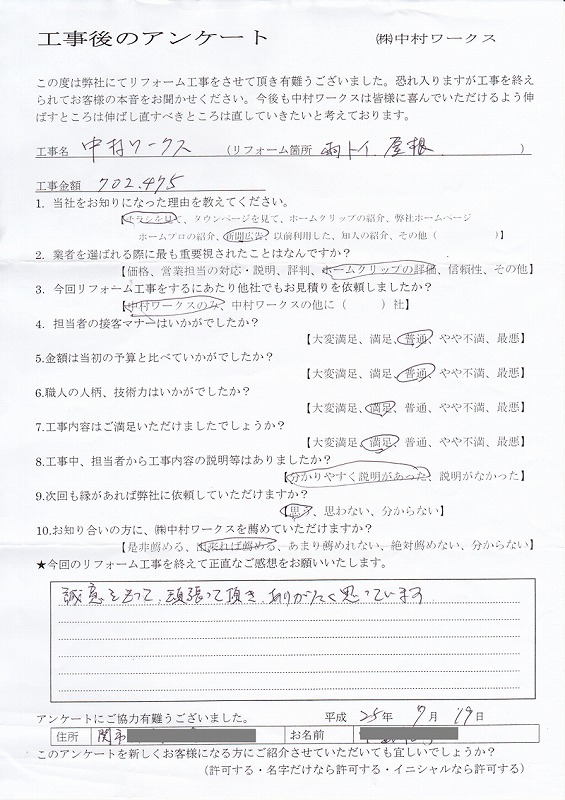 工事後のアンケート ㈱中村ワークス
この度は弊社にてリフォーム工事をさせて頂き有難うございました。恐れ入りますが工事を終え
られてお客様の本音をお聞かせください。今後も中村ワークスは皆様に喜んでいただけるよう伸
ばすところは伸ばし直すべきところは直していきたいと考えております。
工事名 中村ワークス (リフォーム箇所 雨トイ、屋根 )
工事金額 702.475
1. 当社をお知りになった理由を教えてください。
【チラシを見て、タウンページを見て、ホームクリップの紹介、弊社ホームページ
ホームプロの紹介、新聞広告、以前利用した、知人の紹介、その他( )】
2. 業者を選ばれる際に最も重要視されたことはなんですか?
【価格、営業担当の対応・説明、評判、ホームクリップの評価、信頼性、その他】
3. 今回リフォーム工事をするにあたり他社でもお見積りを依頼しましたか?
【中村ワークスのみ、中村ワークスの他に( )社】
4. 担当者の接客マナーはいかがでしたか?
【大変満足、満足、普通、やや不満、最悪】
5.金額は当初の予算と比べていかがでしたか?
【大変満足、満足、普通、やや不満、最悪】
6.職人の人柄、技術力はいかがでしたか?
【大変満足、満足、普通、やや不満、最悪】
7.工事内容はご満足いただけましたでしょうか?
【大変満足、満足、普通、やや不満、最悪】
8.工事中、担当者から工事内容の説明等はありましたか?
【分かりやすく説明があった、説明がなかった】
9.次回も縁があれば弊社に依頼していただけますか?
【思う、思わない、分からない】
10.お知り合いの方に、㈱中村ワークスを薦めていただけますか?
【是非薦める、出来れば薦める、あまり薦めれない、絶対薦めない、分からない】
★今回のリフォーム工事を終えて正直なご感想をお願いいたします。
誠意をもって、頑張って頂き、ありがたく思っています
アンケートにご協力有難うございました。 平成 25年 7月 19日
住所 関市 お名前
このアンケートを新しくお客様になる方にご紹介させていただいても宜しいでしょうか?
(許可する・名字だけなら許可する・イニシャルなら許可する)